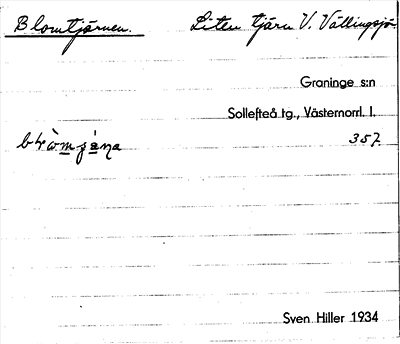 Blomtjärnen. Liten tjärn V. Vällingsjö.
Graninge s:n
Sollefteå tg., Västernorrl. l.
357.
Sven Hiller 1934